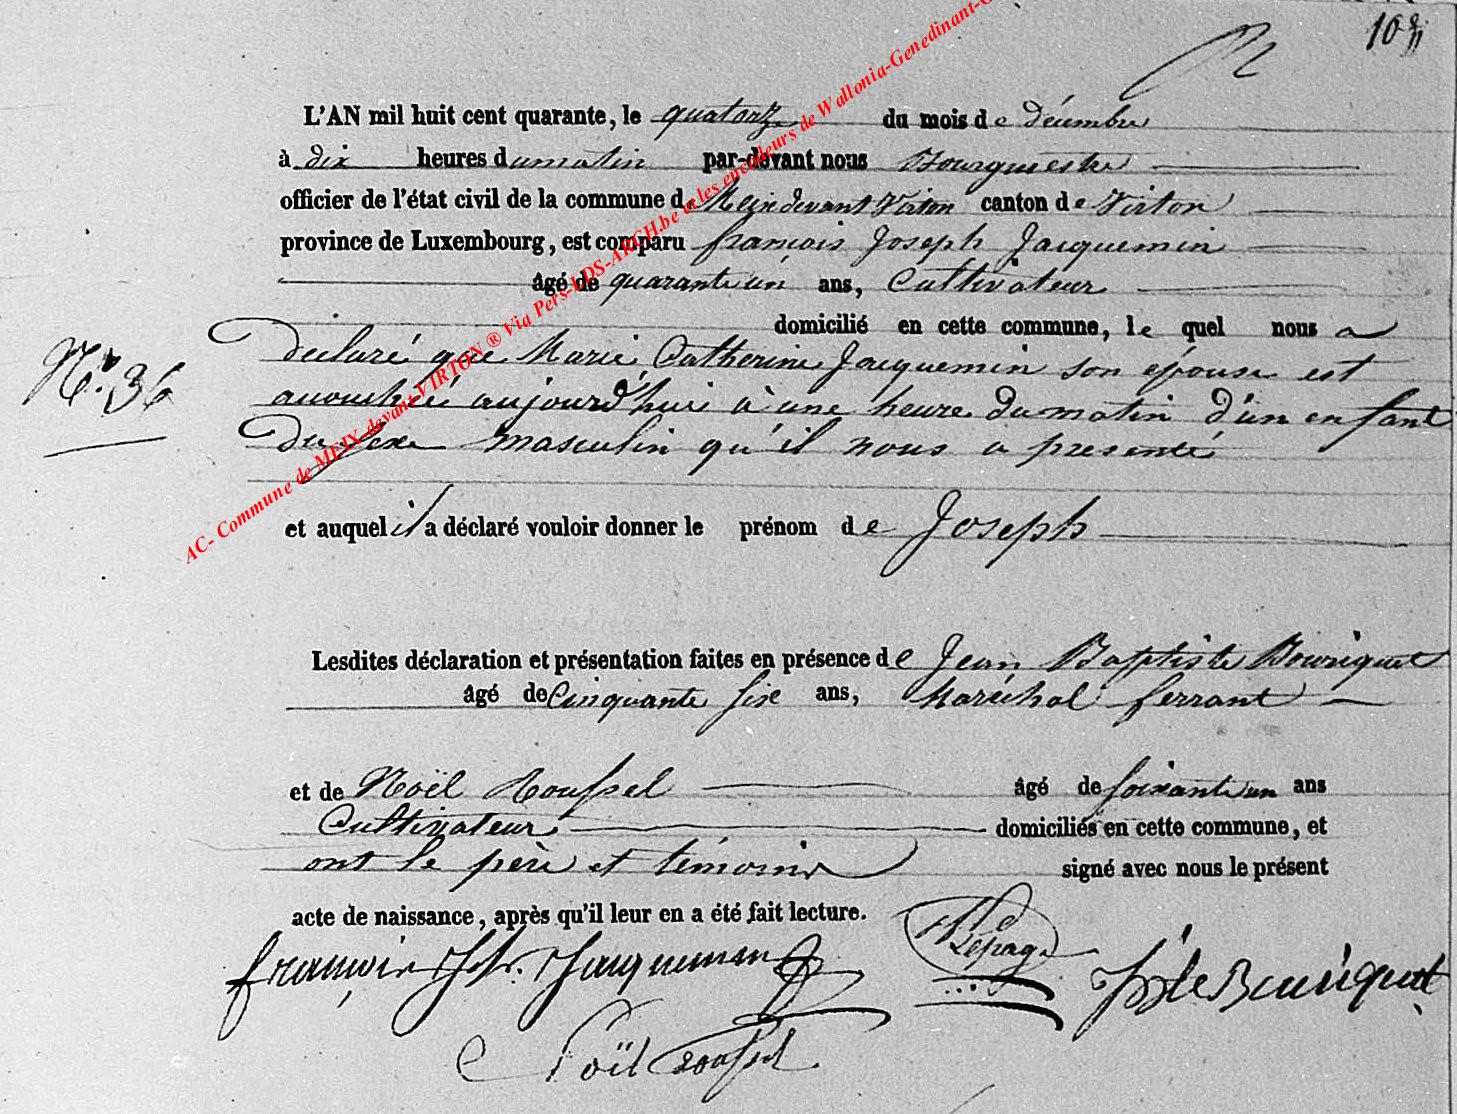 108
L'AN mil huit cent quarante, le quatorze du mois de décembre
à dix heures du matin par-devant nous Bourgmestre
officier de l'état civil de la commune de Meix devant Virton canton de Virton
province de Luxembourg, est comparu françois Joseph Jacquemin
âgé de quarante un ans, Cultivateur
domicilié en cette commune, le quel nous a
déclaré que Marie Catherine Jacquemin son épouse est
N° 36
accouchée aujourd'hui à une heure du matin d'un enfant
du sexe masculin qu'il nous a presenté
et auquel il a déclaré vouloir donner le prénom de Joseph
Lesdites déclaration et présentation faites en présence de Jean Baptiste Bouriquet
âgé de Cinquante six ans, Maréchal ferrant
et de Noël Roussel âgé de soixante un ans
Cultivateur domiciliés en cette commune, et
ont le père et témoins signé avec nous le présent
acte de naissance, après qu'il leur en a été fait lecture.
françois Jph. Jacquemin Lepage Jp Bte Bouriquet
Noïl Roussel
AC- Commune de MEIX-devant-VIRTON ® Via Pers-LDS-ARCH.be et les encodeurs de Wallonia-Genedinant-